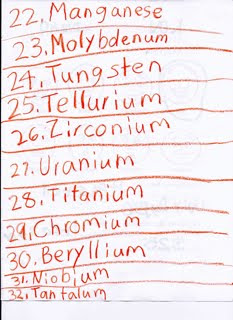 22. Manganese
23. Molybdenum
24. Tungsten
25. Tellurium
26. Zirconium
27. Uranium
28. Titanium
29. Chromium
30. Beryllium
31. Niobium
32. Tantalum